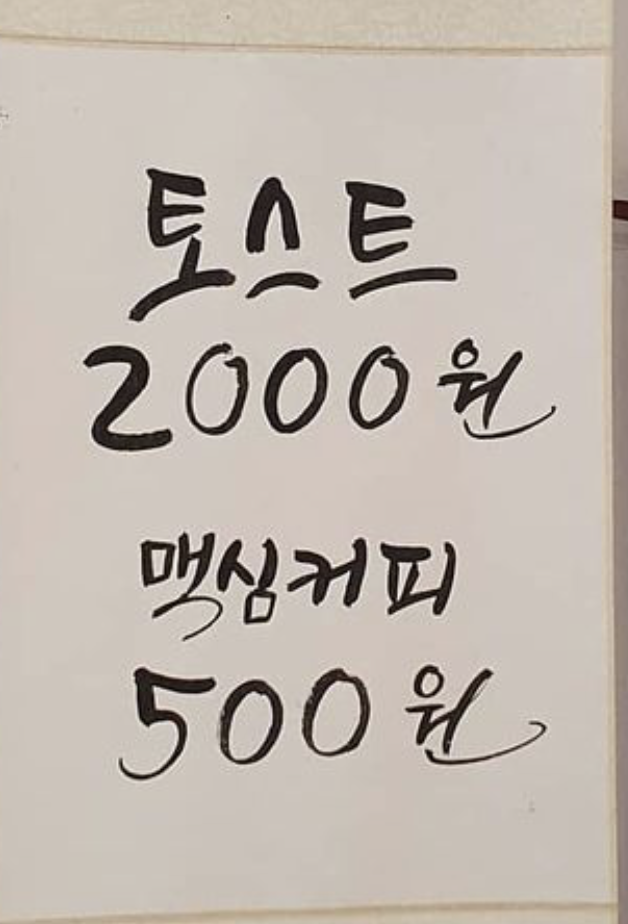 토스트
2000원
맥심커피
500원